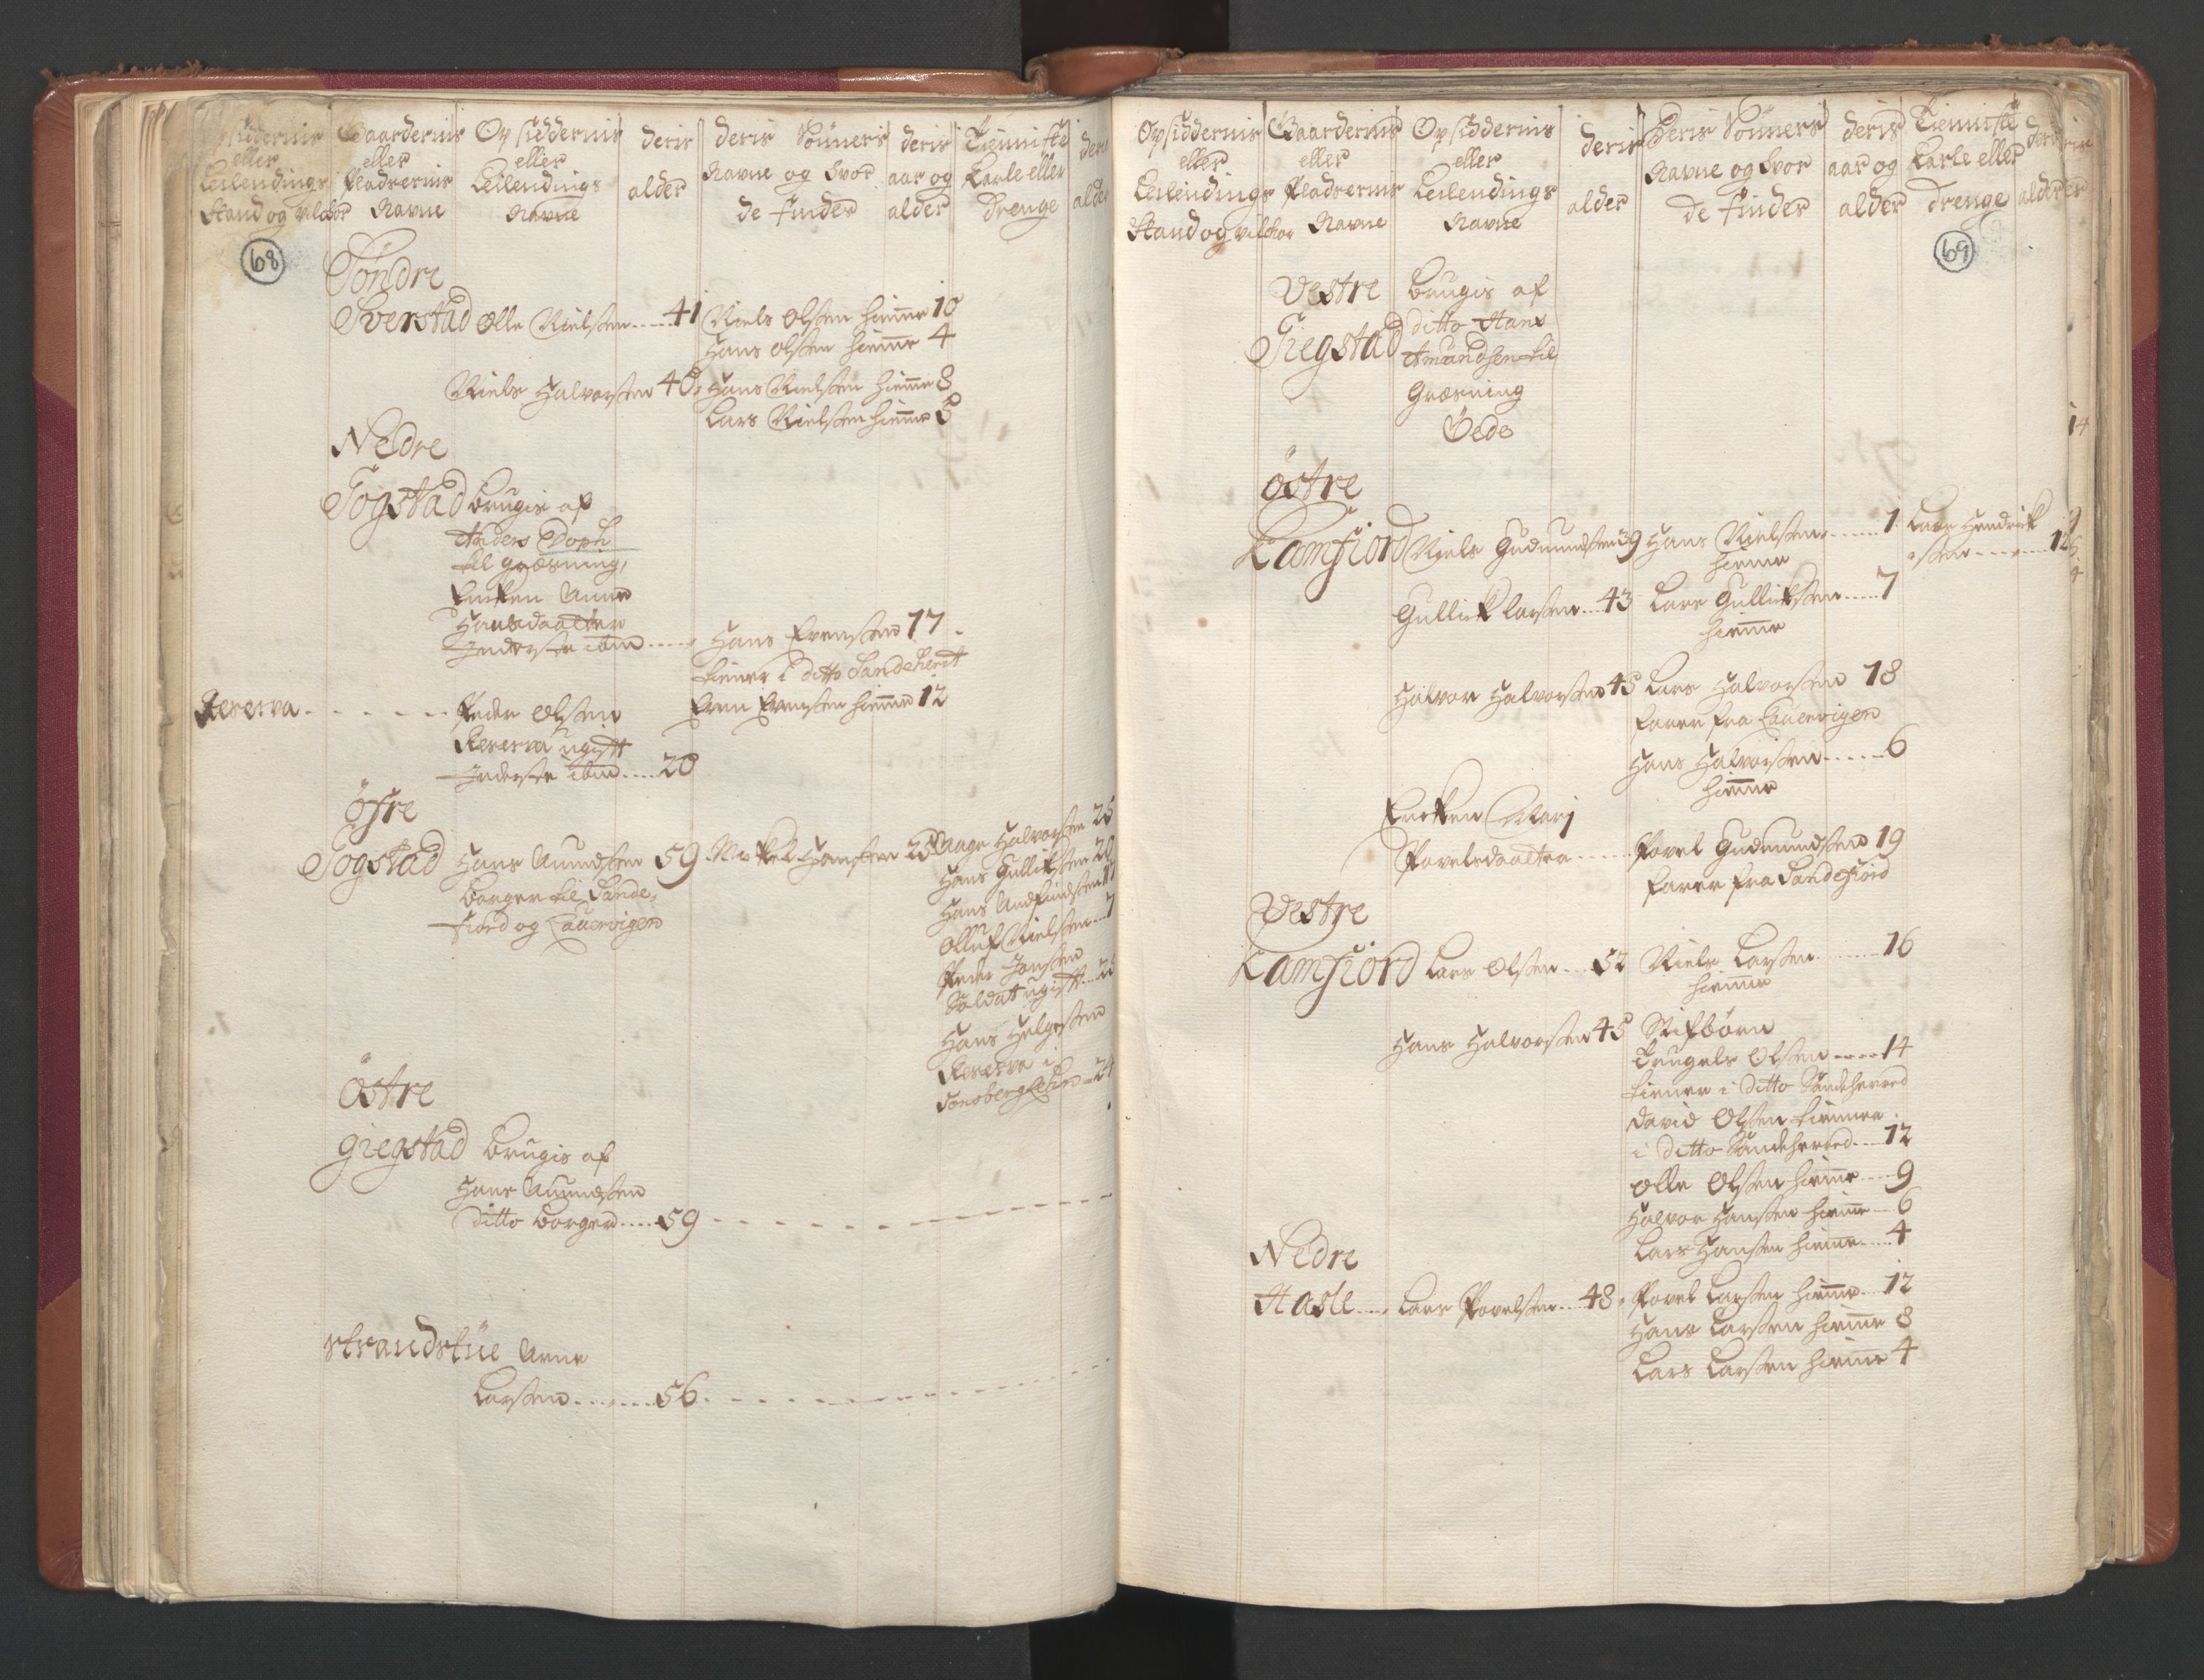 Opsiddernis
eller
Leilendings
Stand og vilckor
Gaardernis
eller
Pladzernis
Navne
Opsiddernis
eller
Leilendings
Navne
deris
alder
deris Sönners
Navne og hvor
de findes
deris
aar og
alder
Tienniste
Karle eller
drenge
deris
alder
68
Söndre
Sverstad Olle Nielsen 41 Niels Olsen hiemme 10
Hans Olsen hiemme 4
Niels Halvorsen 40 Hans Nielsen hiemme 8
Lars Nielsen hiemme 5
Nedre
Togstad brugis af
Anders
til græsning,
Encken Anne
Hansdaatter
Inderste ibm Hans Evensen 17
tiener i ditto Sandeherit
Reserva Peder Olsen Even Evensen hiemme 12
Reserva ugift
Inderste ibm 20
öfre
Togstad Hans Amundsen 59 Mickel Hansen 25 Aage Halvorsen 25
borger til Sande-
fiord og Lauervigen
Hans Gulliksen 20
Hans
Olluf Nielsen 7
Peder Jonsen
Soldat ugift
Hans Helgesen
Reserva i
Tonsberg 24
östre
giegstad brugis af
Hans Amundsen
ditto borger 59
strandstüe Arne
Larsen 56
Opsiddernis
eller
Leilendings
Stand og vilckor
Gaardernis
eller
Pladzernis
Navne
Opsiddernis
eller
Leilendings
Navne
deris
alder
Deris Sönners
Navne og hvor
de findes
deris
aar og
alder
Tienniste
Karle eller
drenge
deris
alder
69
Vestre brugis af
Giegstad ditto Hans
Amundsen til
Græsning
Öede
östre
Kamfiord Niels Gudmundsen 39 Hans Nielsen 1 Lars Hendrick
hiemme
sen 12
Gullick Larsen 43 Lars Gullicksen 7
hiemme
Halvor Halvorsen 45 Lars Halvorsen 18
farer fra Lauervigen
Hans Halvorsen 6
hiemme
Encken Marj
Povelsdaatter Povel Gudmundsen 19
farer fra Sandefiord
Vestre
Kamfiord Lars Olsen 52 Niels Larsen 16
hiemme
Hans Halvorsen 45 Stifbörn
Trugels Olsen 14
tiener i ditto Sandeherred
David Olsen tienner
i ditto Sandeherred 12
Olle Olsen hiemme 9
Halvor Hansen hiemme 6
Lars Hansen hiemme 4
Nedre
Hasle Lars Povelsen 48 Povel Larsen hiemme 12
Hans Larsen hiemme 8
Lars Larsen hiemme 4
14